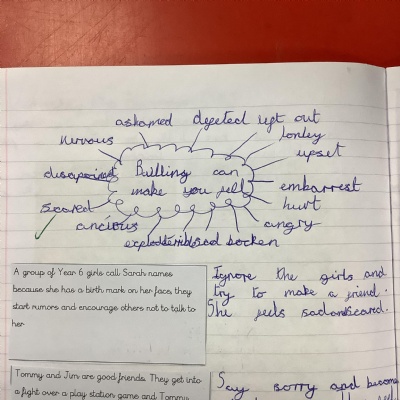 ashamed dejected left out
nervous lonley
upset
disapoined Bulling can
make you fell embarrest
scared hurt
ancious angry
sad bocken
A group of Year 6 girls call Sarah names
because she has a birth mark on her face, they
start rumors and encourage others not to talk to
her
Ignore the girls and
try to make a friend.
She feels sad and scared.
Tommy and Jim are good friends. They get into
a fight over a play station game and Tommy
Say sorry and become